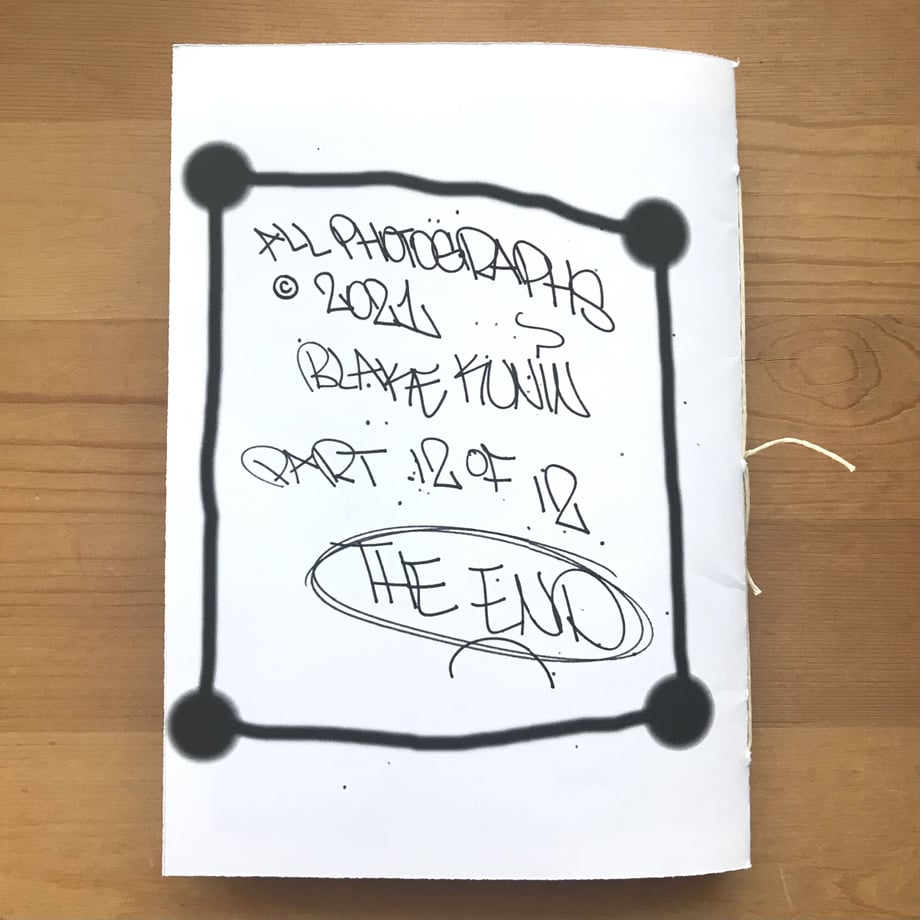 ALL PHOTOGRAPHS
© 2021
BLAKE KUNIN
PART 12 OF 12
THE END